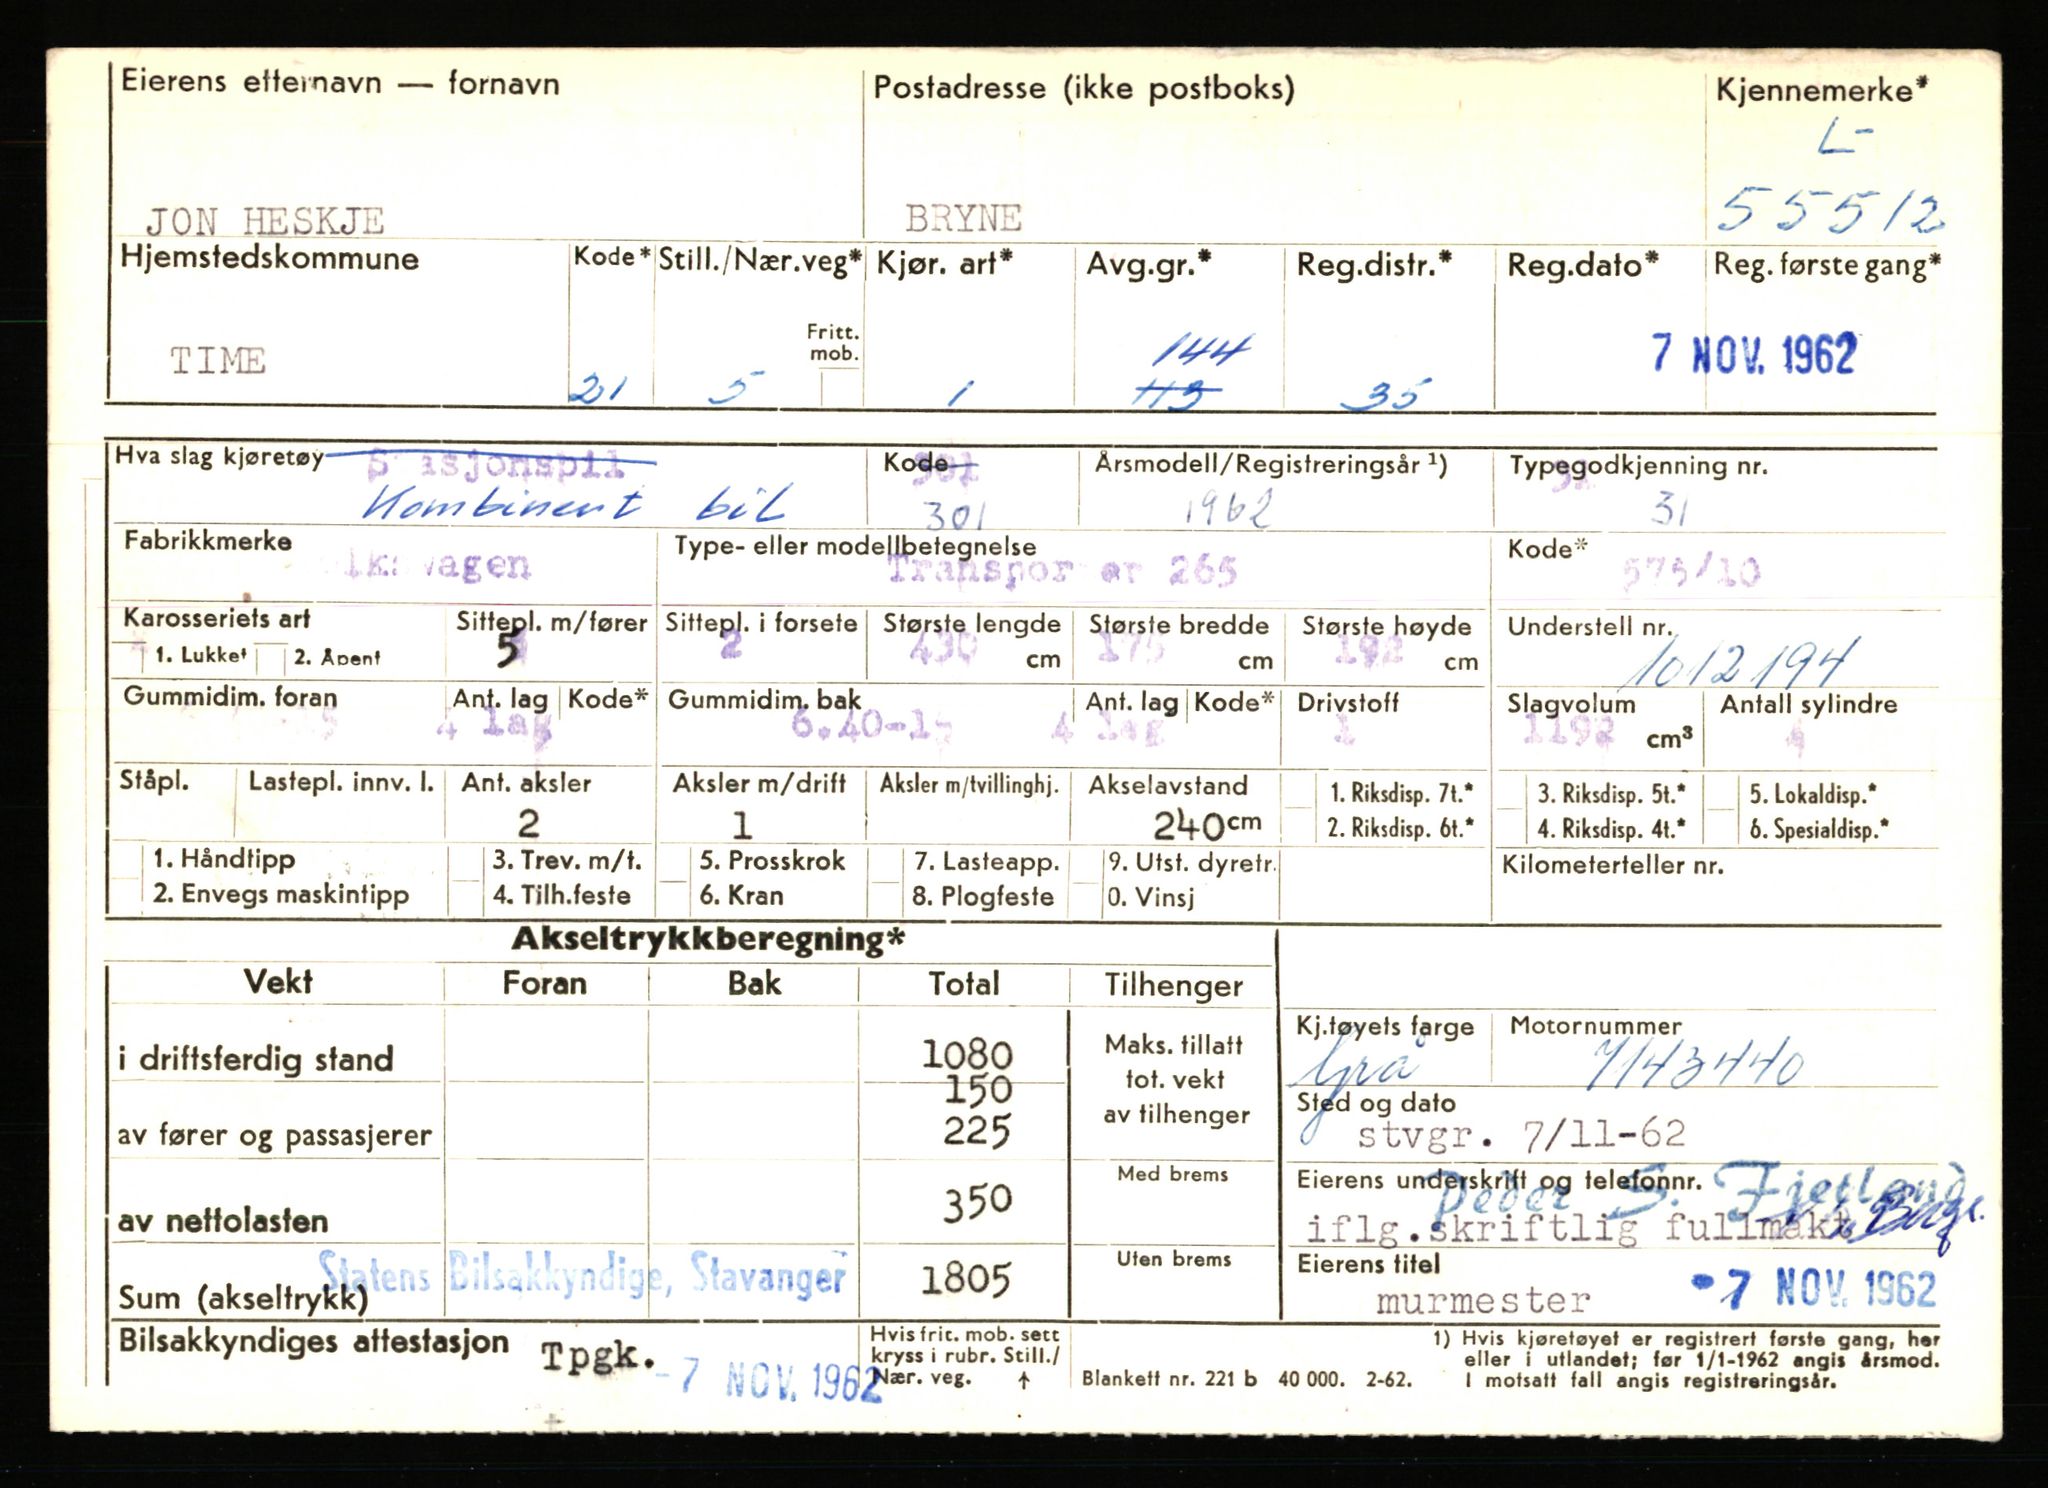 Eierens etternavn — fornavn Postadresse (ikke postboks) Kjennemerke*
L-
JON HESKJE BRYNE 55512
Hjemstedskommune Kode* Still./Nær.veg* Kjør. art* Avg.gr.* Reg.distr.* Reg.dato* Reg. første gang*
Fritt.
mob.
144
TIME 7 NOV. 1962
21 5 1 113 35
Hva slag kjøretøy Stasjonsbil Kode 301 Årsmodell/Registreringsår ¹) Typegodkjenning nr.
Kombinert bil 301 1962 31
Fabrikkmerke Type- eller modellbetegnelse Kode*
lkswagen Transporter 265 575/10
Karosseriets art Sittepl. m/fører Sittepl. i forsete Største lengde Største bredde Største høyde Understell nr.
1. Lukket 2. Åpent 5 2 430 cm 175 cm 192 cm 1012194
Gummidim. foran Ant. lag Kode* Gummidim. bak Ant. lag Kode* Drivstoff Slagvolum Antall sylindre
4 lag 6.40-15 4 lag 1 1192 cm³ 4
Ståpl. Lastepl. innv. l. Ant. aksler Aksler m/drift Aksler m/tvillinghj. Akselavstand 1. Riksdisp. 7t.* 3. Riksdisp. 5t.* 5. Lokaldisp.*
2 1 240 cm 2. Riksdisp. 6t.* 4. Riksdisp. 4t.* 6. Spesialdisp.*
1. Håndtipp 3. Trev. m/t. 5. Prosskrok 7. Lasteapp. 9. Utst. dyretr. Kilometerteller nr.
2. Envegs maskintipp 4. Tilh.feste 6. Kran 8. Plogfeste 0. Vinsj
Akseltrykkberegning*
Vekt Foran Bak Total Tilhenger
Kj.tøyets farge Motornummer
i driftsferdig stand 1080 Maks. tillatt Grå 7143440
150 tot. vekt
Sted og dato
av fører og passasjerer 225 av tilhenger stvgr. 7/11-62
Med brems Eierens underskrift og telefonnr.
Peder S. Fjetland
av nettolasten 350 iflg.skriftlig fullmakt
Uten brems Eierens titel
Statens Bilsakkyndige, Stavanger
Sum (akseltrykk) 1805 murmester -7 NOV. 1962
Bilsakkyndiges attestasjon Tpgk. -7 NOV. 1962
Hvis frit. mob. sett
kryss i rubr. Still./
Nær. veg. ↑
Blankett nr. 221 b 40 000. 2-62.
1) Hvis kjøretøyet er registrert første gang, her
eller i utlandet; før 1/1-1962 angis årsmod.
I motsatt fall angis registreringsår.